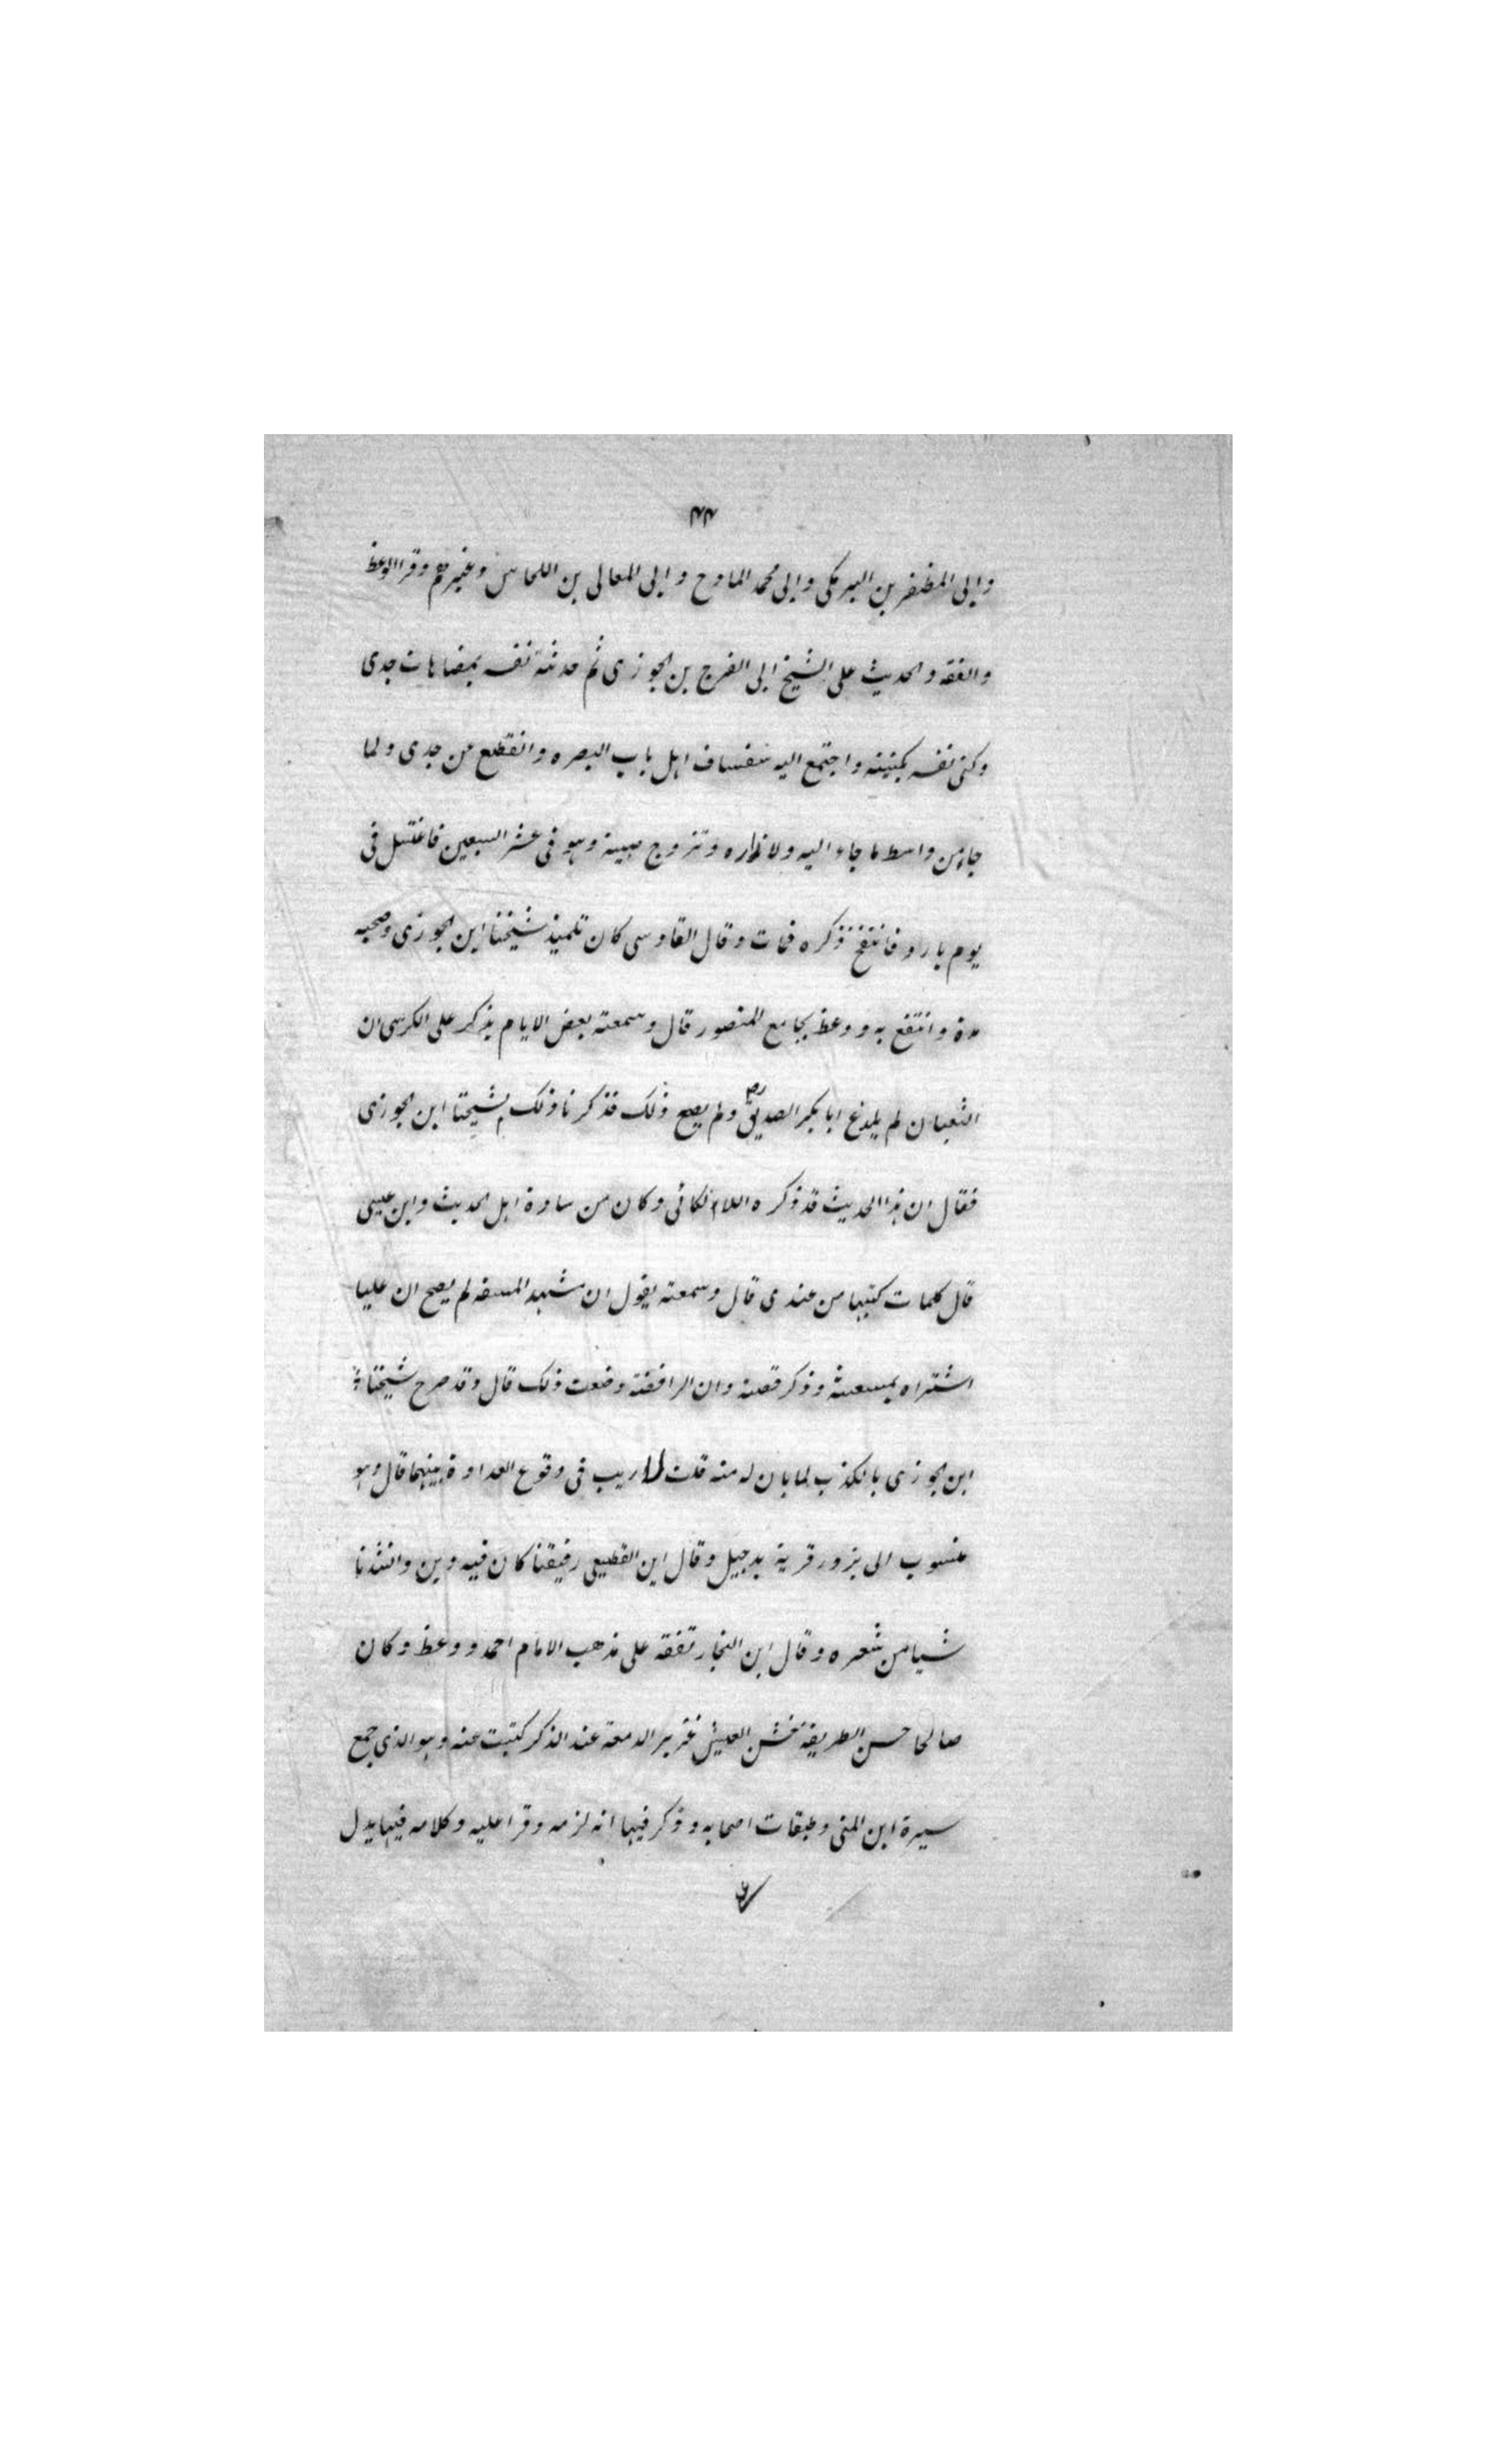 ٣٣
وابى المظفر بن البرمكى وابى محمد المادح و ابى المعالى بن اللحاس وغيرهم وقرا الوعظ
والفقه والحديث على الشيخ ابى الفرج بن الجوزى ثم حدثته نفسه بمضاهات جدى
وكنى نفسه بكنيته واجتمع اليه سفساف اهل باب البصره وانقطع عن جدى ولما
جاء من واسط ما جاء اليه ولا زاره وتزوج صبية وهو فى عشر السبعين فاغتسل فى
يوم بارد فانتفخ ذكره فمات وقال القادسى كان تلميذ شيخنا ابن الجوزى وصحبه
مدة وانتفع به ووعظ بجامع المنصور قال وسمعته بعض الايام يذكر على الكرسى ان
الثعبان لم يلدغ ابا بكر الصديق رض ولم يصح ذلك فذكرنا ذلك لشيخنا ابن الجوزى
فقال ان هذا الحديث قد ذكره اللالكائى وكان من سادة اهل الحديث وابن عيسى
قال كلمات كتبها من عندى قال وسمعته يقول ان مشهد لم يصح ان عليا
اشتراه وذكر قصته وان الرافضة وضعت ذلك قال وقد صرح شيخنا
ابن الجوزى بالكذب لما بان له منه قلت لا ريب فى وقوع العداوة بينهما قال وهو
منسوب الى بزور قرية بدجيل وقال ابن القطيعى رفيقنا كان فيه دين وانشدنا
شيا من شعره وقال ابن النجار تفقه على مذهب الامام احمد ووعظ وكان
صالحا حسن الطريقة خشن العيش غزير الدمعة عند الذكر كتبت عنه وهو الذى جمع
سيرة ابن المنى وطبقات اصحابه وذكر فيها انه لزمه وقرا عليه وكلامه فيها يدل